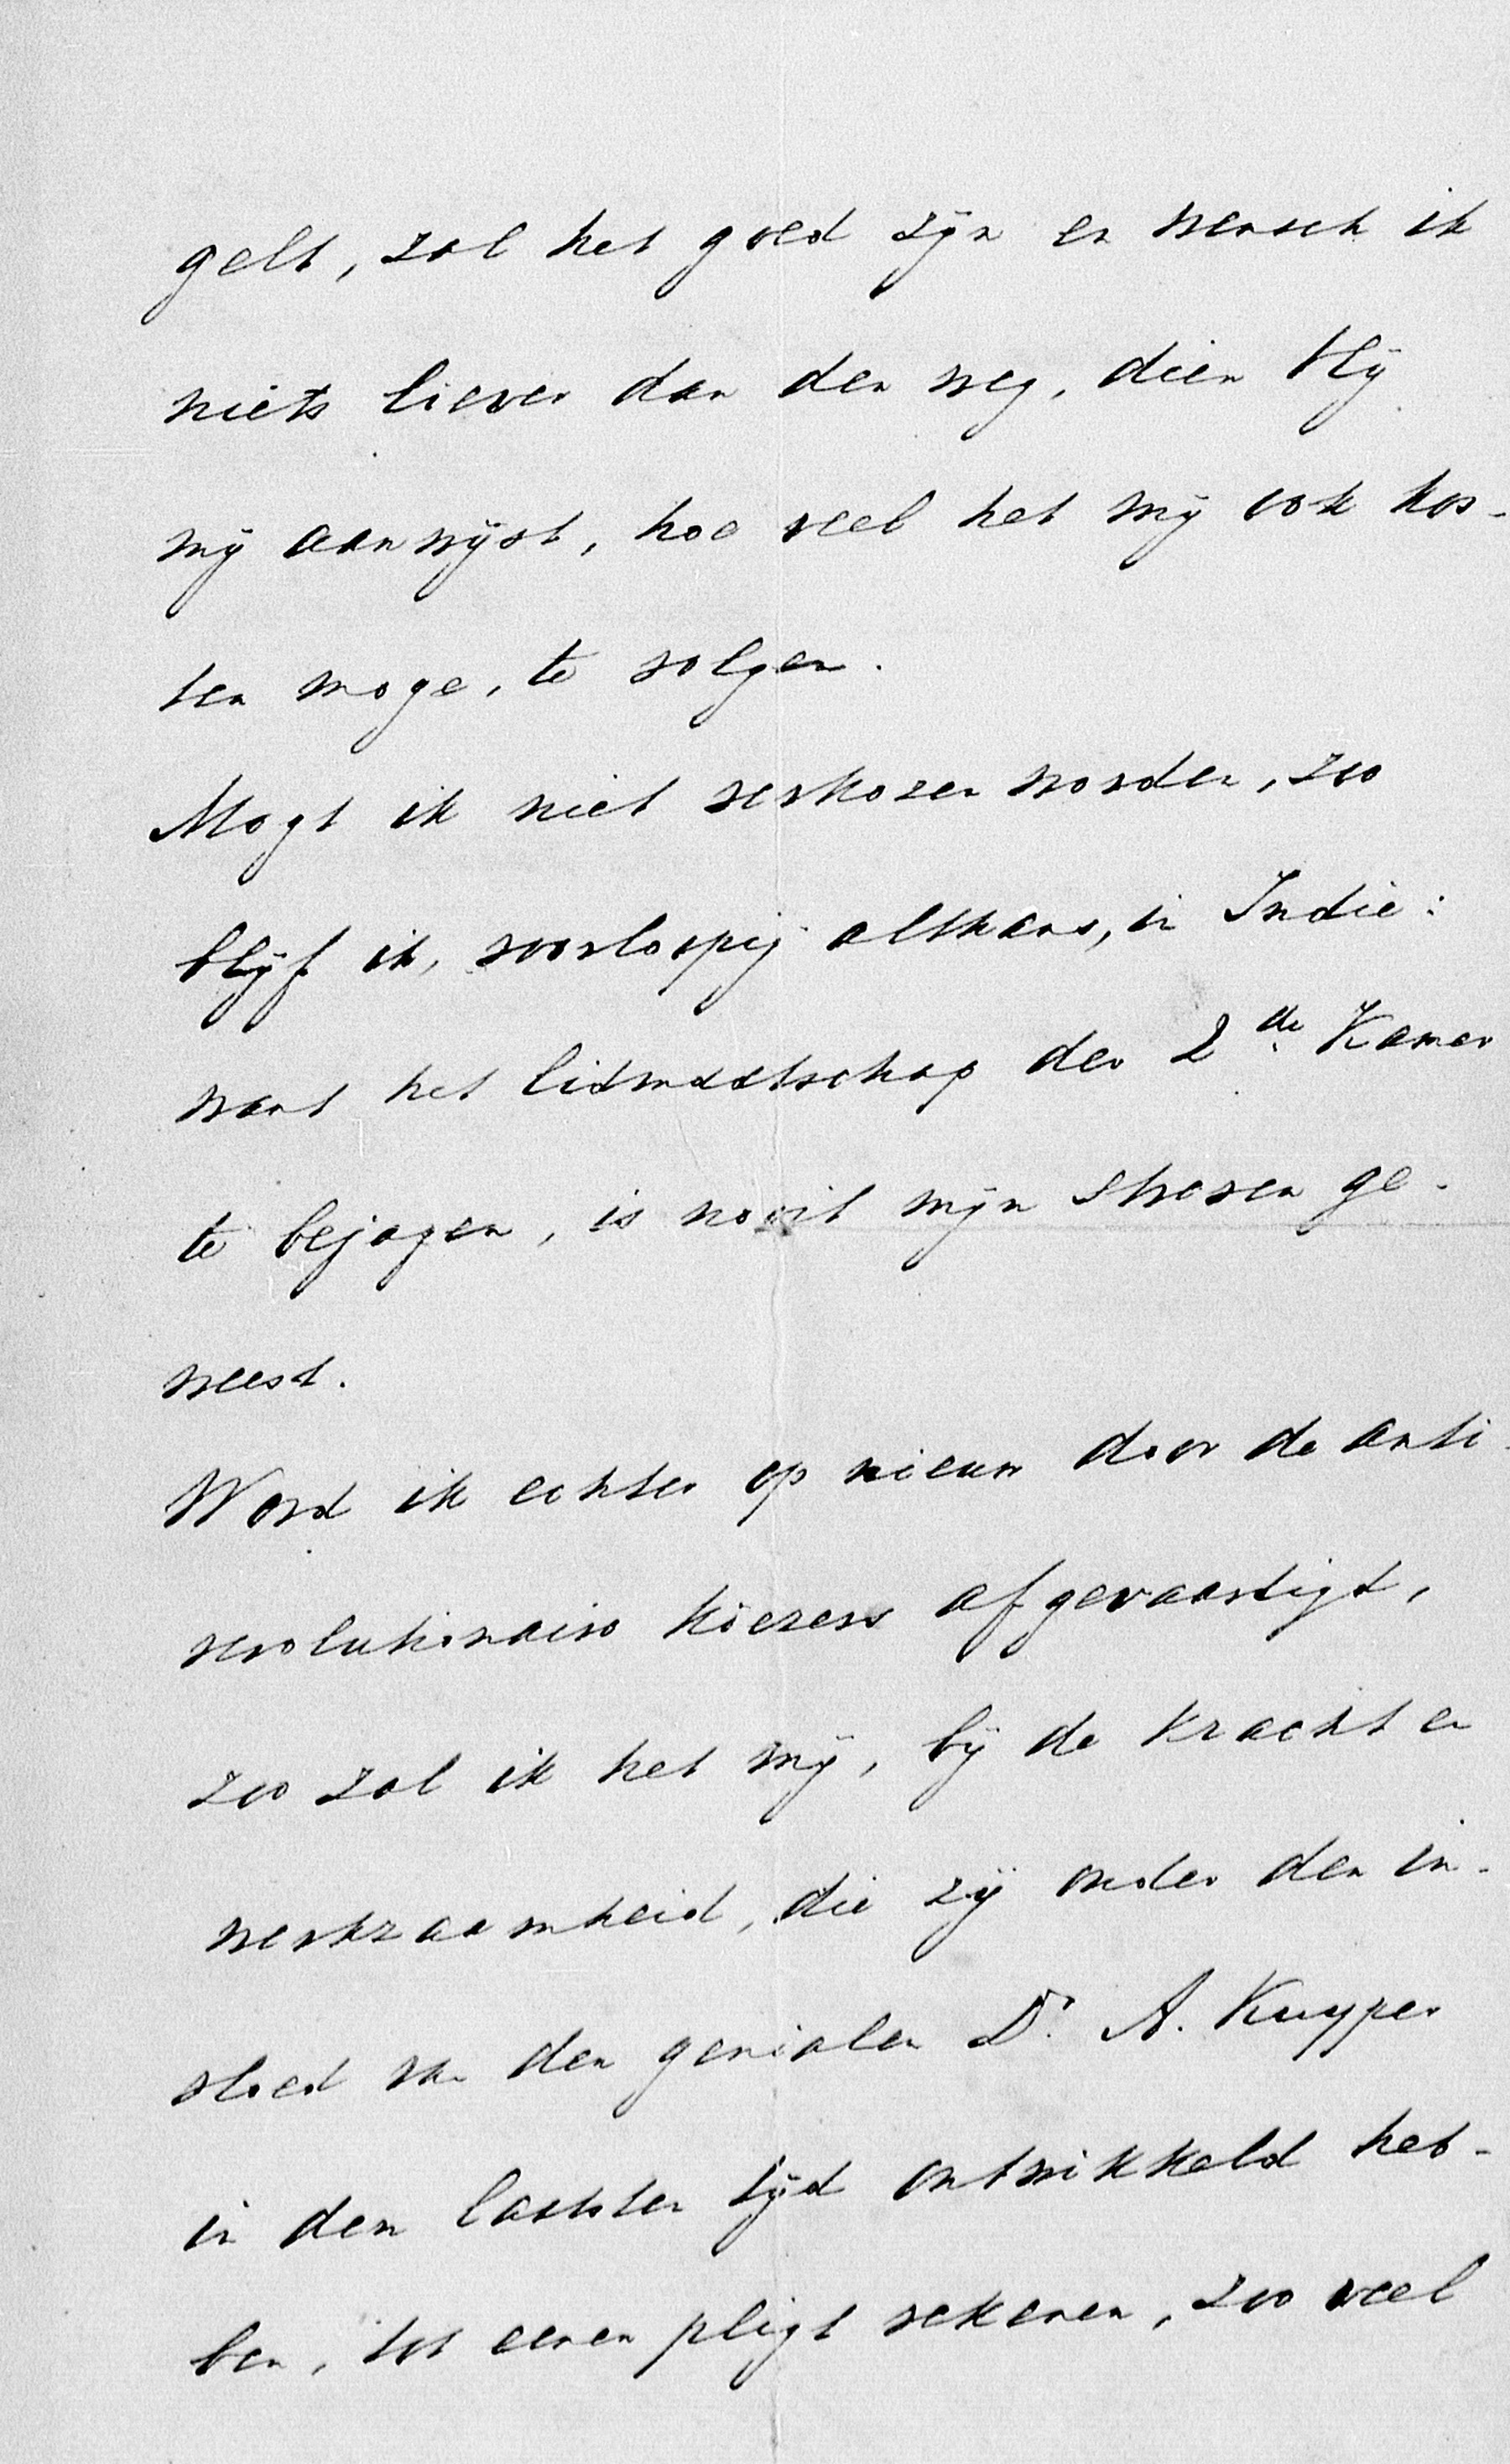 gelt, zal het goed zijn en wensch ik
niets liever dan den weg, dien Hij
mij aanwijst, hoe veel het mij ook kos-
ten moge, te volgen.
Mogt ik niet verkozen worden, zoo
blijf ik, voorloopig althans, in Indie:
want het lidmaatschap der 2de Kamer
te bejagen, is nooit mijn streven ge-
weest.
Word ik echter op nieuw door de anti-
revolutionaire kiezers afgevaardigd,
zoo zal ik het mij, bij de kracht en
werkzaamheid, die zij onder den in-
vloed van den genialen Dr. A. Kuyper
in den laatsten tijd ontwikkeld heb-
ben, tot eenen pligt rekenen, zoo veel